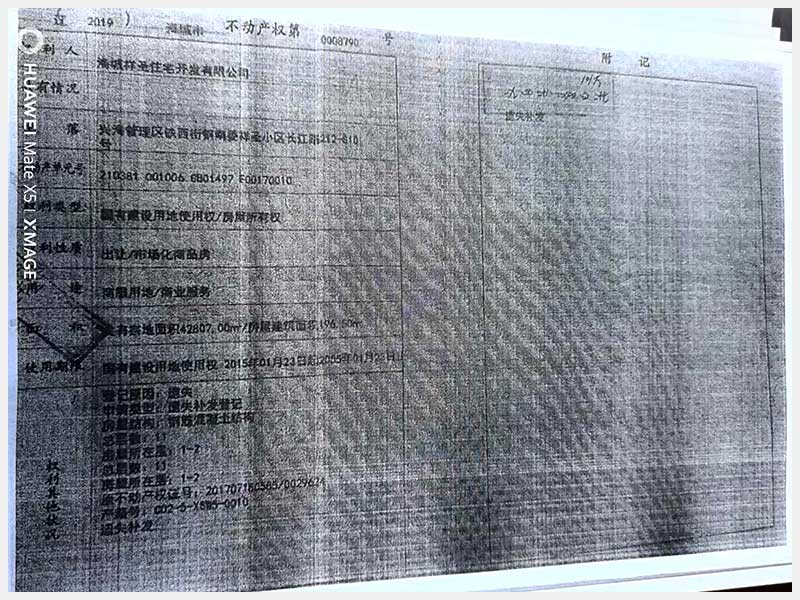 辽 2019 ) 海城市 不动产权第 0008790 号
附 记
利 人 海城祥圣住宅开发有限公司
有情况
遗失补发
落 兴海管理区铁西街 祥圣小区长江路212-S10
号
产单元号 210381 001006 GB01497 F00170010
利类型 国有建设用地使用权/房屋所有权
利性质 出让/市场化商品房
用 途 商服用地/商业服务
面 积 共有宗地面积42807.00㎡/房屋建筑面积196.50㎡
使用期限 国有建设用地使用权 2015年01月23日起2005年01月23日止
权利其他状况
登记原因：遗失
申请类型：遗失补发登记
房屋结构：钢筋混凝土结构
总层数：11
房屋所在层：1-2
总层数：11
房屋所在层：1-2
原不动产权证号：201707180585/0029624
产籍号：C02-5-XSW5-0010
遗失补发
HUAWEI Mate X5 | XMAGE